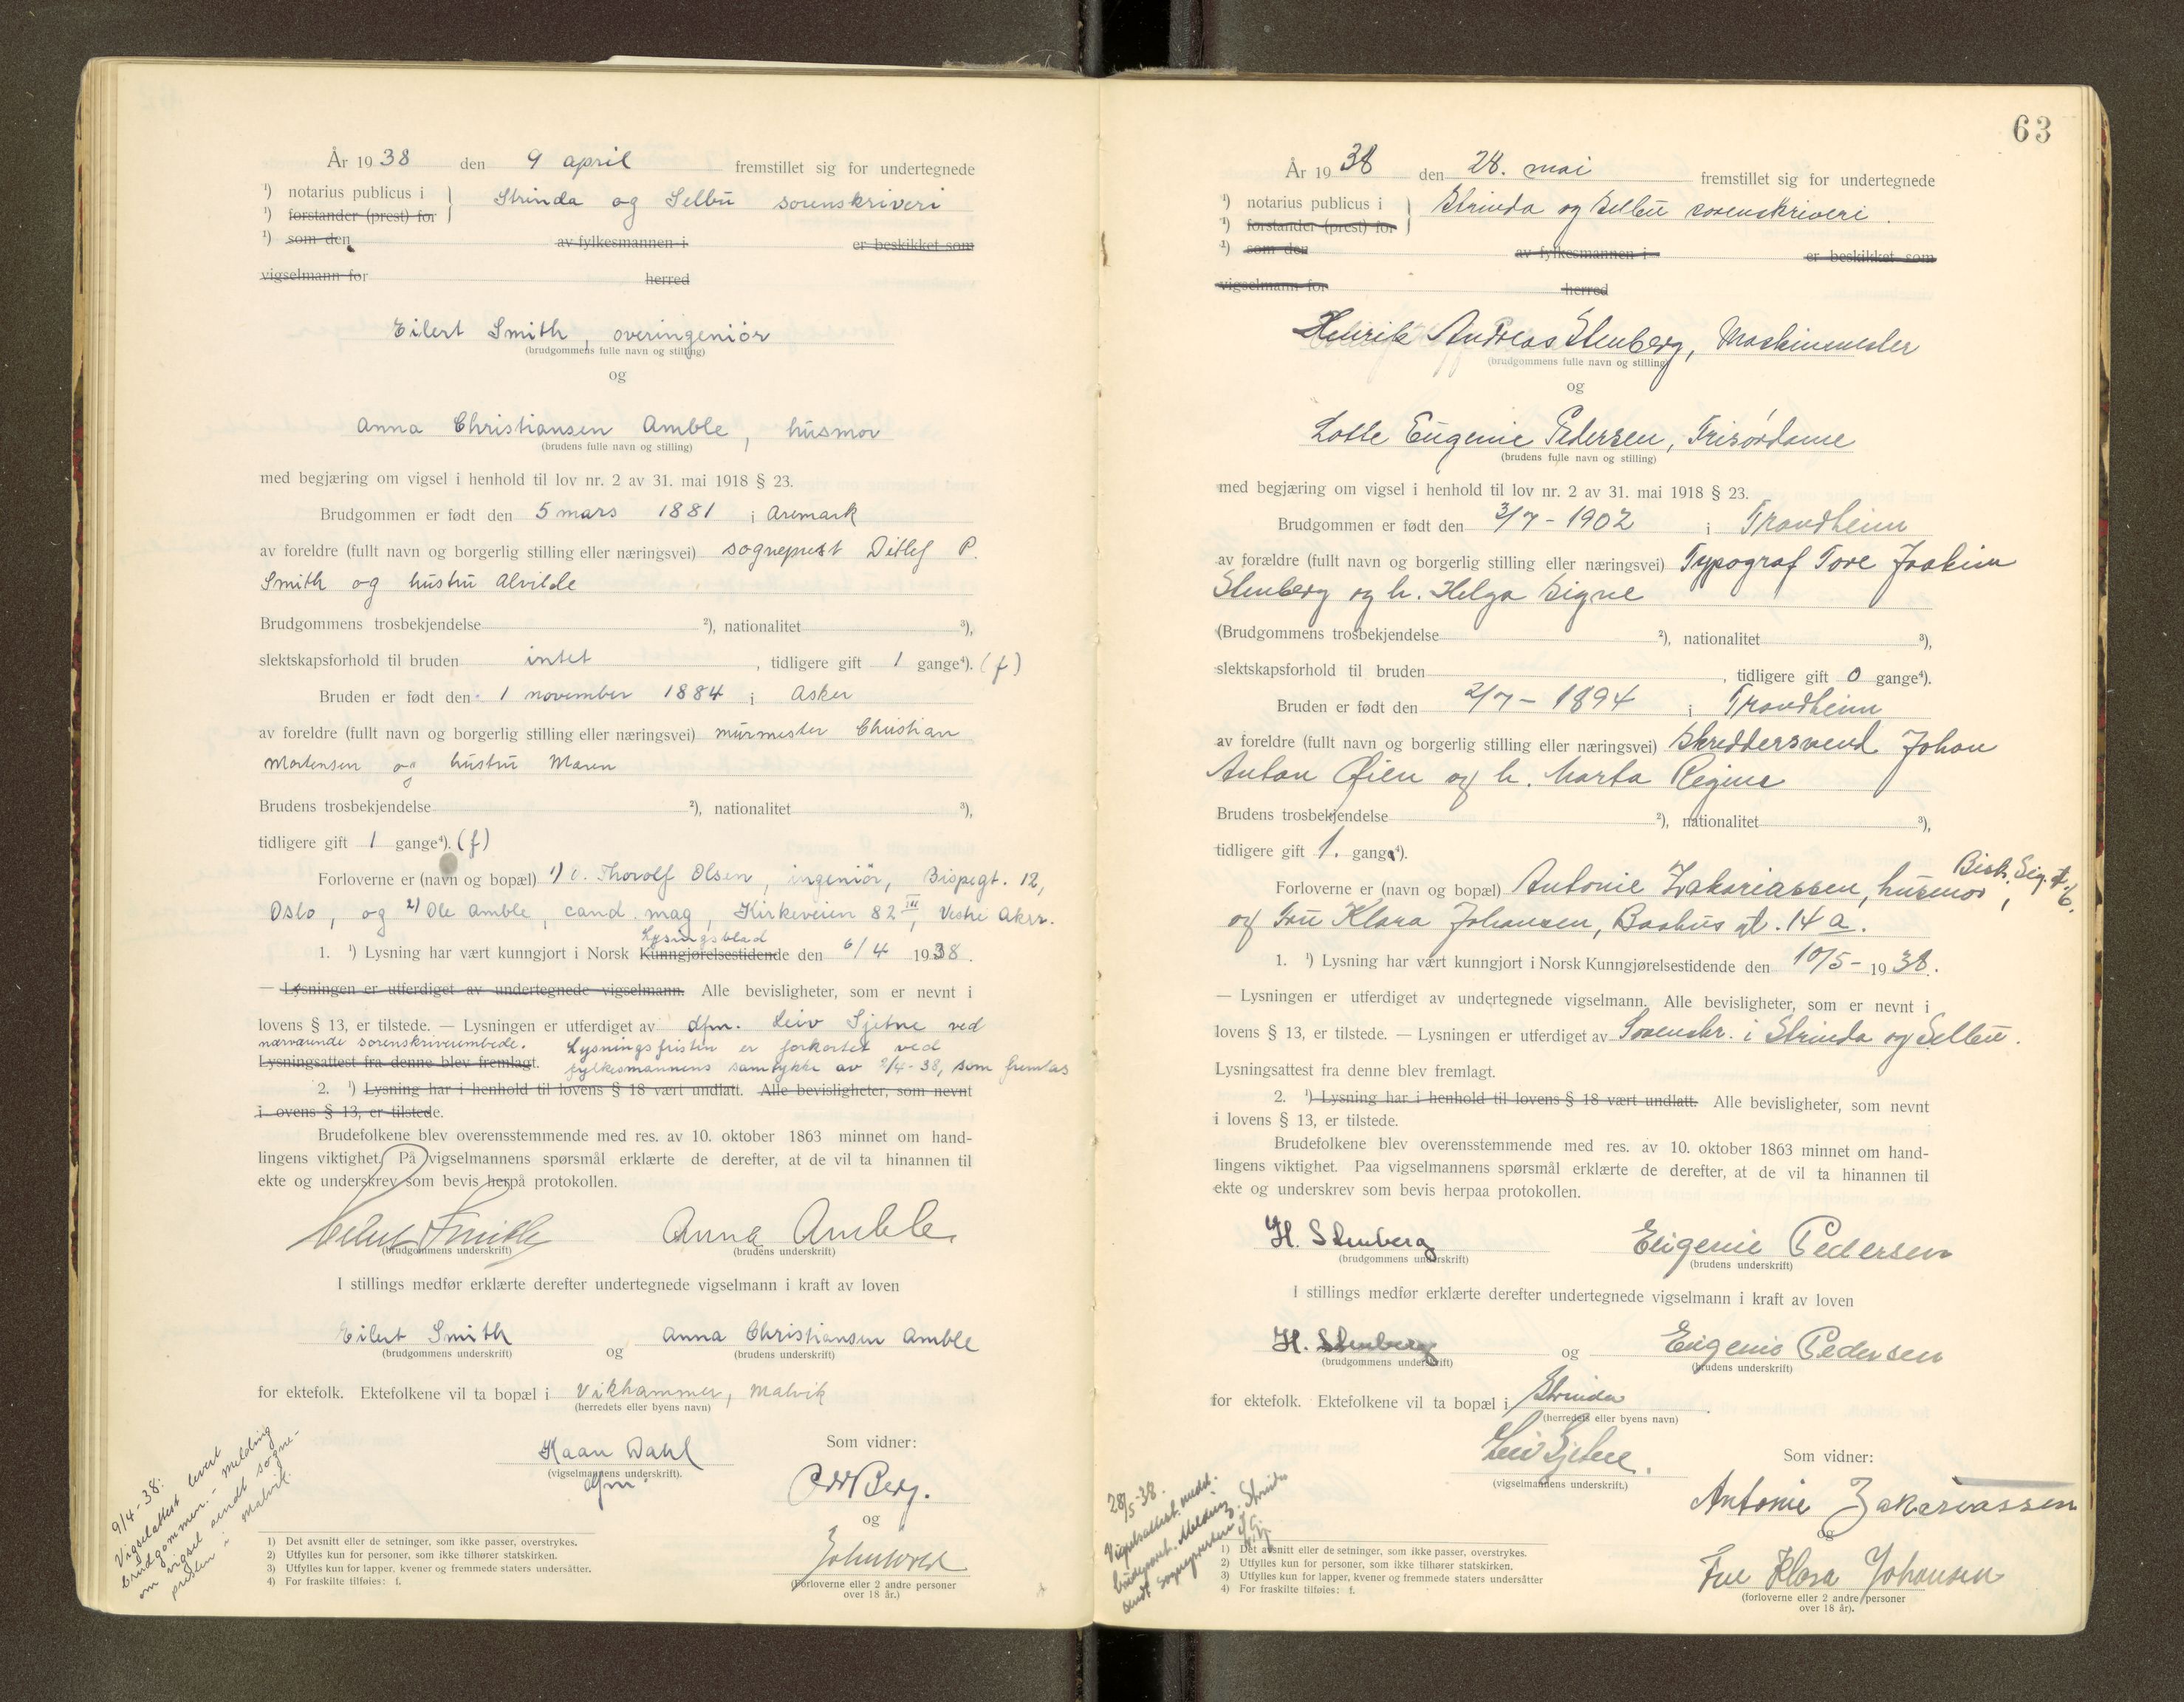 År 1938 den 9 april fremstillet sig for undertegnede
¹) notarius publicus i } Strinda og Selbu sorenskriveri
¹) forstander (prest) for
¹) som den av fylkesmannen i er beskikket som
vigselmann for herred
Eilert Smith, overingeniör
(brudgommens fulle navn og stilling)
og
Anna Christiansen Amble, husmor
(brudens fulle navn og stilling)
med begjæring om vigsel i henhold til lov nr. 2 av 31. mai 1918 § 23.
Brudgommen er født den 5 mars 1881 i Aremark
av foreldre (fullt navn og borgerlig stilling eller næringsvei) sogneprest Ditlef P.
Smith og hustru Alvilde
Brudgommens trosbekjendelse ²), nationalitet ³),
slektskapsforhold til bruden intet, tidligere gift 1 gange⁴). (f)
Bruden er født den 1 november 1884 i Asker
av foreldre (fullt navn og borgerlig stilling eller næringsvei) murmester Christian
Mortensen og hustru Maren
Brudens trosbekjendelse ²), nationalitet ³),
tidligere gift 1 gange⁴). (f)
Forloverne er (navn og bopæl) 1) O. Thorolf Olsen, ingeniör, Bispegt. 12,
Oslo, og 2) Ole Amble, cand. mag, Kirkeveien 82 III, Vestre Aker.
Lysningsblad
1. ¹) Lysning har vært kunngjort i Norsk Kunngjørelsestidende den 6/4 1938.
— Lysningen er utferdiget av undertegnede vigselmann. Alle bevisligheter, som er nevnt i
lovens § 13, er tilstede. — Lysningen er utferdiget av dfm. Leiv Sjetne ved
nærværende sorenskriverembede. Lysningsfristen er forkortet ved
Lysningsattest fra denne blev fremlagt. fylkesmannens samtykke av 2/4-38, som fremlas
2. ¹) Lysning har i henhold til lovens § 18 vært undlatt. Alle bevisligheter, som nevnt
i lovens § 13, er tilstede.
Brudefolkene blev overensstemmende med res. av 10. oktober 1863 minnet om hand-
lingens viktighet. På vigselmannens spørsmål erklærte de derefter, at de vil ta hinannen til
ekte og underskrev som bevis herpå protokollen.
Eilert Smith Anna Amble
(brudgommens underskrift) (brudens underskrift)
I stillings medfør erklærte derefter undertegnede vigselmann i kraft av loven
Eilert Smith og Anna Christiansen Amble
(brudgommens underskrift) (brudens underskrift)
for ektefolk. Ektefolkene vil ta bopæl i Vikhammer, Malvik
(herredets eller byens navn)
Haan Dahl
(vigselmannens underskrift).
dfm.
Som vidner:
Odd Berg.
og
(Forloverne eller 2 andre personer
over 18 år.)
9/4-38:
Vigselattest levert
brudgommen. - Melding
om vigsel sendt sogne-
presten i Malvik.
1) Det avsnitt eller de setninger, som ikke passer, overstrykes.
2) Utfylles kun for personer, som ikke tilhører statskirken.
3) Utfylles kun for lapper, kvener og fremmede staters undersåtter.
4) For fraskilte tilføies: f.
63
År 1938 den 28. mai fremstillet sig for undertegnede
¹) notarius publicus i } Strinda og Selbu sorenskriveri.
¹) forstander (prest) for
¹) som den av fylkesmannen i er beskikket som
vigselmann for herred
Henrik Andreas Stenberg, Maskinmester
(brudgommens fulle navn og stilling)
og
Lotte Eugenie Pedersen, Frisördame
(brudens fulle navn og stilling)
med begjæring om vigsel i henhold til lov nr. 2 av 31. mai 1918 § 23.
Brudgommen er født den 3/7 - 1902 i Trondheim
av forældre (fullt navn og borgerlig stilling eller næringsvei) Typograf Tore Joakim
Stenberg og h. Helga Signe
(Brudgommens trosbekjendelse ²), nationalitet ³),
slektskapsforhold til bruden , tidligere gift 0 gange⁴).
Bruden er født den 2/7 - 1894 i Trondheim
av foreldre (fullt navn og borgerlig stilling eller næringsvei) Skreddersvend Johan
Anton Øien og h. Marta Regine
Brudens trosbekjendelse ²), nationalitet ³),
tidligere gift 1. gange⁴).
Bisk. Sig. gt. 6.
Forloverne er (navn og bopæl) Antonie Zakariassen, husmor,
og Fru Klara Johansen, Baahus gt. 14 a.
1. ¹) Lysning har vært kunngjort i Norsk Kunngjørelsestidende den 10/5 - 1938.
— Lysningen er utferdiget av undertegnede vigselmann. Alle bevisligheter, som er nevnt i
lovens § 13, er tilstede. — Lysningen er utferdiget av Sorenskr. i Strinda og Selbu.
Lysningsattest fra denne blev fremlagt.
2. ¹) Lysning har i henhold til lovens § 18 vært undlatt. Alle bevisligheter, som nevnt
i lovens § 13, er tilstede.
Brudefolkene blev overensstemmende med res. av 10. oktober 1863 minnet om hand-
lingens viktighet. Paa vigselmannens spørsmål erklærte de derefter, at de vil ta hinannen til
ekte og underskrev som bevis herpaa protokollen.
H. Stenberg Eugenie Pedersen
(brudgommens underskrift) (brudens underskrift)
I stillings medfør erklærte derefter undertegnede vigselmann i kraft av loven
H. Stenberg og Eugenie Pedersen
(brudgommens underskrift) (brudens underskrift)
for ektefolk. Ektefolkene vil ta bopæl i Strinda
(herredets eller byens navn)
Leiv Sjetne.
(vigselmannens underskrift.)
Som vidner:
Antonie Zakariassen
og
Frue Klara Johansen
(forloverne eller 2 andre personer
over 18 år).
28/5-38.
Vigselsattest medd.
brudeparet. Melding
sendt sognepresten i Strinda
1) Det avsnitt eller de setninger, som ikke passer, overstrykes.
2) Utfylles kun for personer, som ikke tilhører statskirken.
3) Utfylles kun for lapper, kvener og fremmede staters undersåtter
4) For fraskilte tilføies: f.